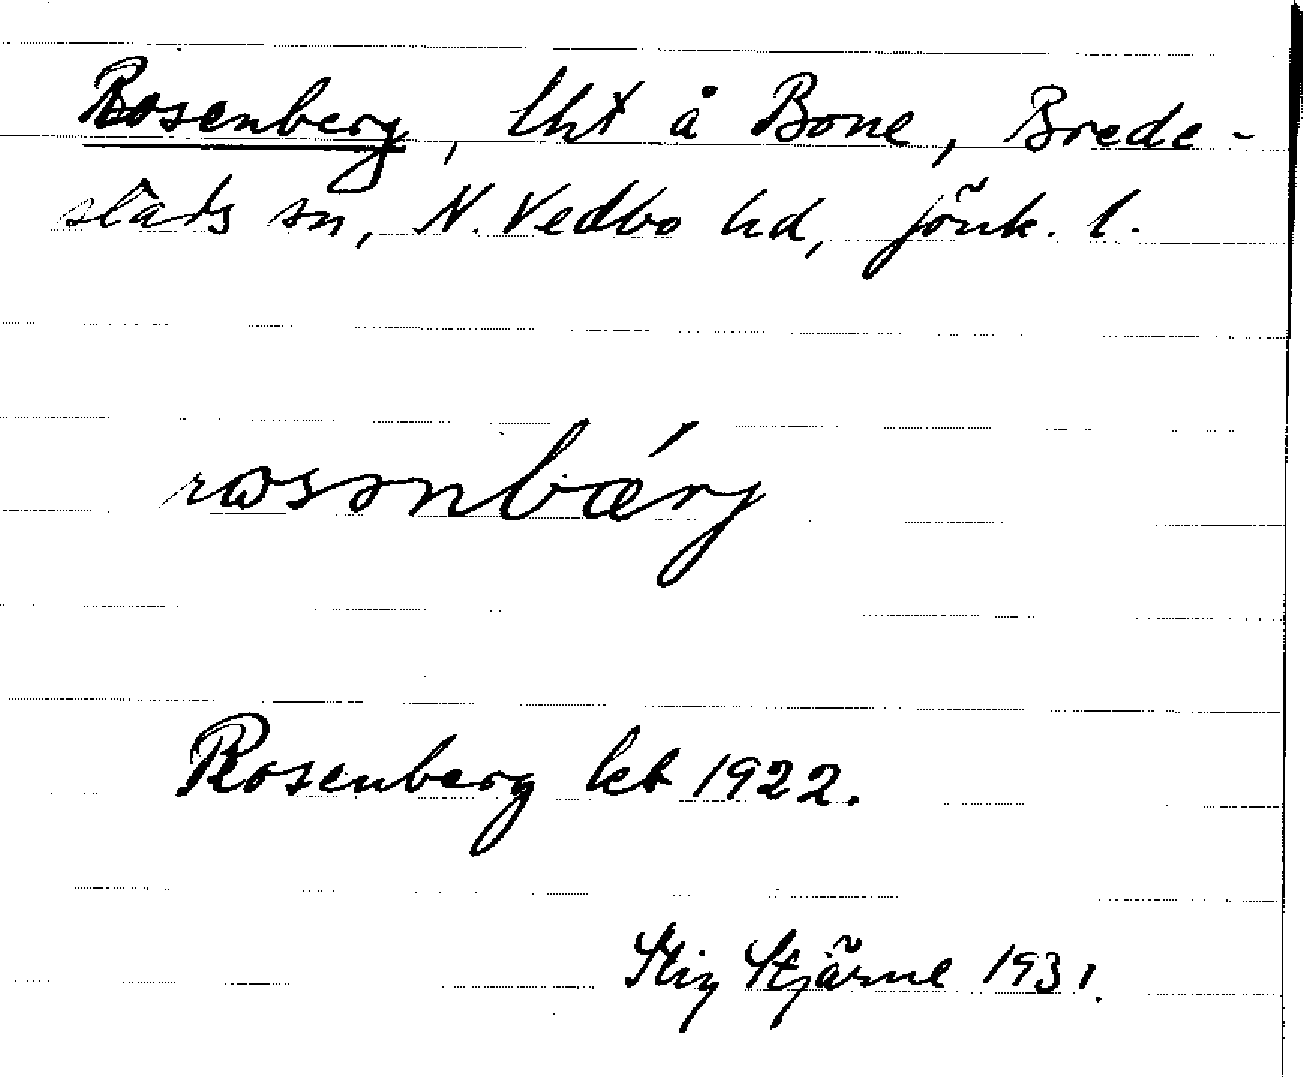 Rosenberg, lht å Bone, Brede-
stads sn, N. Vedbo hd, Jönk. l.
rosənbærj
Rosenberg kb 1922.
Stig Stjärne 1931.